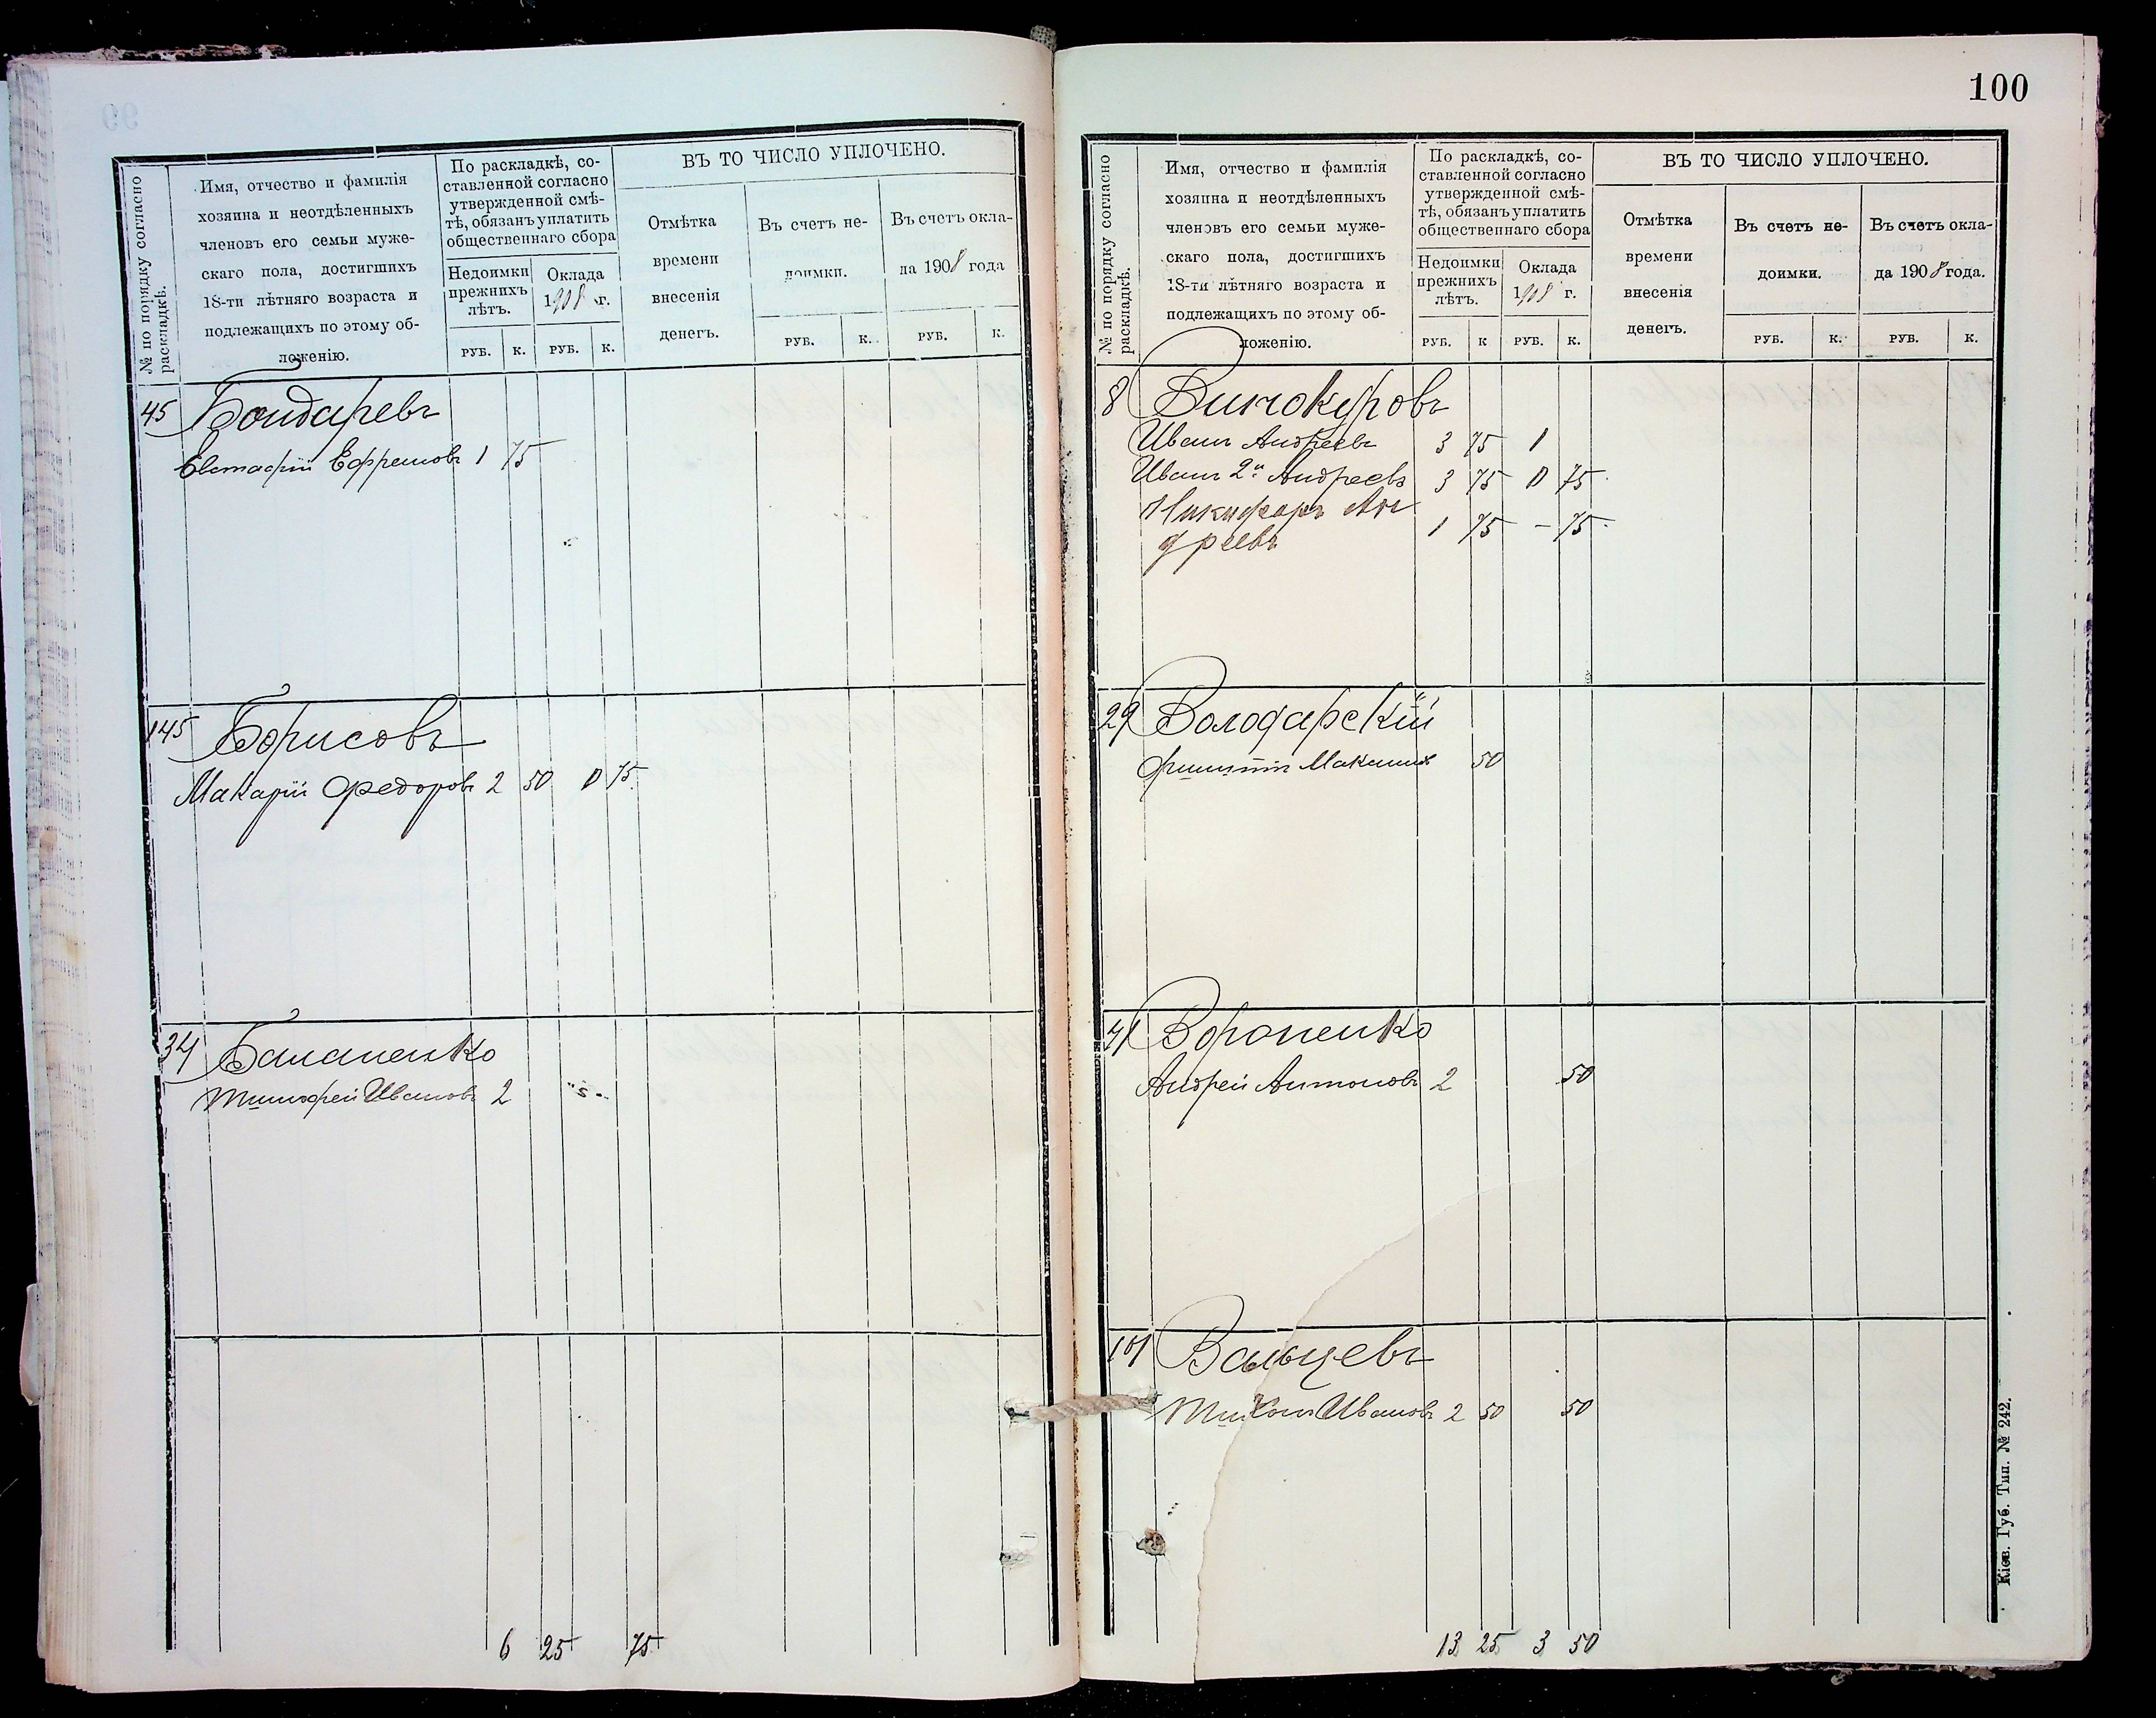 № по порядку согласно
раскладкѣ.
Имя, отчество и фамилія
хозяина и неотдѣленныхъ
членовъ его семьи муже-
скаго пола, достигшихъ
18-ти лѣтняго возраста и
подлежащихъ по этому об-
ложенію.
По раскладкѣ, со-
ставленной согласно
утвержденной смѣ-
тѣ, обязанъ уплатить
общественнаго сбора
Недоимки
прежнихъ
лѣтъ.
Оклада
1908 г.
РУБ. К. РУБ. К.
ВЪ ТО ЧИСЛО УПЛОЧЕНО.
Отмѣтка
времени
внесенія
денегъ.
Въ счетъ не-
доимки.
РУБ. К.
Въ счетъ окла-
да 1908 года
РУБ. К.
45 Бондаревъ
Евстафій Ефремовъ 1 75
145 Борисовъ
Макарій Федоровъ 2 50 75
34
Тимофей Ивановъ 2
6 25 75
100
№ по порядку согласно
раскладкѣ.
Имя, отчество и фамилія
хозяина и неотдѣленныхъ
членовъ его семьи муже-
скаго пола, достигшихъ
18-ти лѣтняго возраста и
подлежащихъ по этому об-
ложенію.
По раскладкѣ, со-
ставленной согласно
утвержденной смѣ-
тѣ, обязанъ уплатить
общественнаго сбора
Недоимки
прежнихъ
лѣтъ.
Оклада
1908 г.
РУБ. К РУБ. К.
ВЪ ТО ЧИСЛО УПЛОЧЕНО.
Отмѣтка
времени
внесенія
денегъ.
Въ счетъ не-
доимки.
РУБ. К.
Въ счетъ окла-
да 1908 года.
РУБ. К.
8 Винокуровъ
Иванъ Андреевъ 3 75 1
Иванъ 2й Андреевъ 3 75 75
Никифоръ Ан
дреевъ 1 75 - 75
29 Володарскій
50
41 Вороненко
Андрей Антоновъ 2 50
101 Вальцевъ
Тихонъ Ивановъ 2 50 50
13 25 3 50
Кіев. Губ. Тип. № 242.